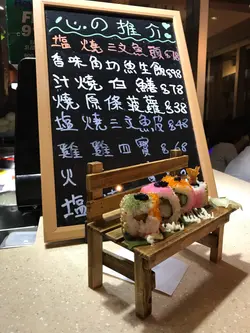 心の推介
塩燒三文魚頭$78
香味角切魚生飯$98
汁燒白鱔$78
燒原條菠蘿$38
塩燒三文魚皮$48
雞雞四寶$68
火
塩